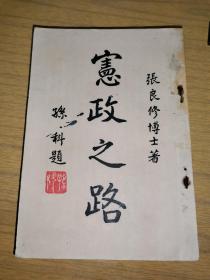 張良修博士著
憲政之路
孫科題